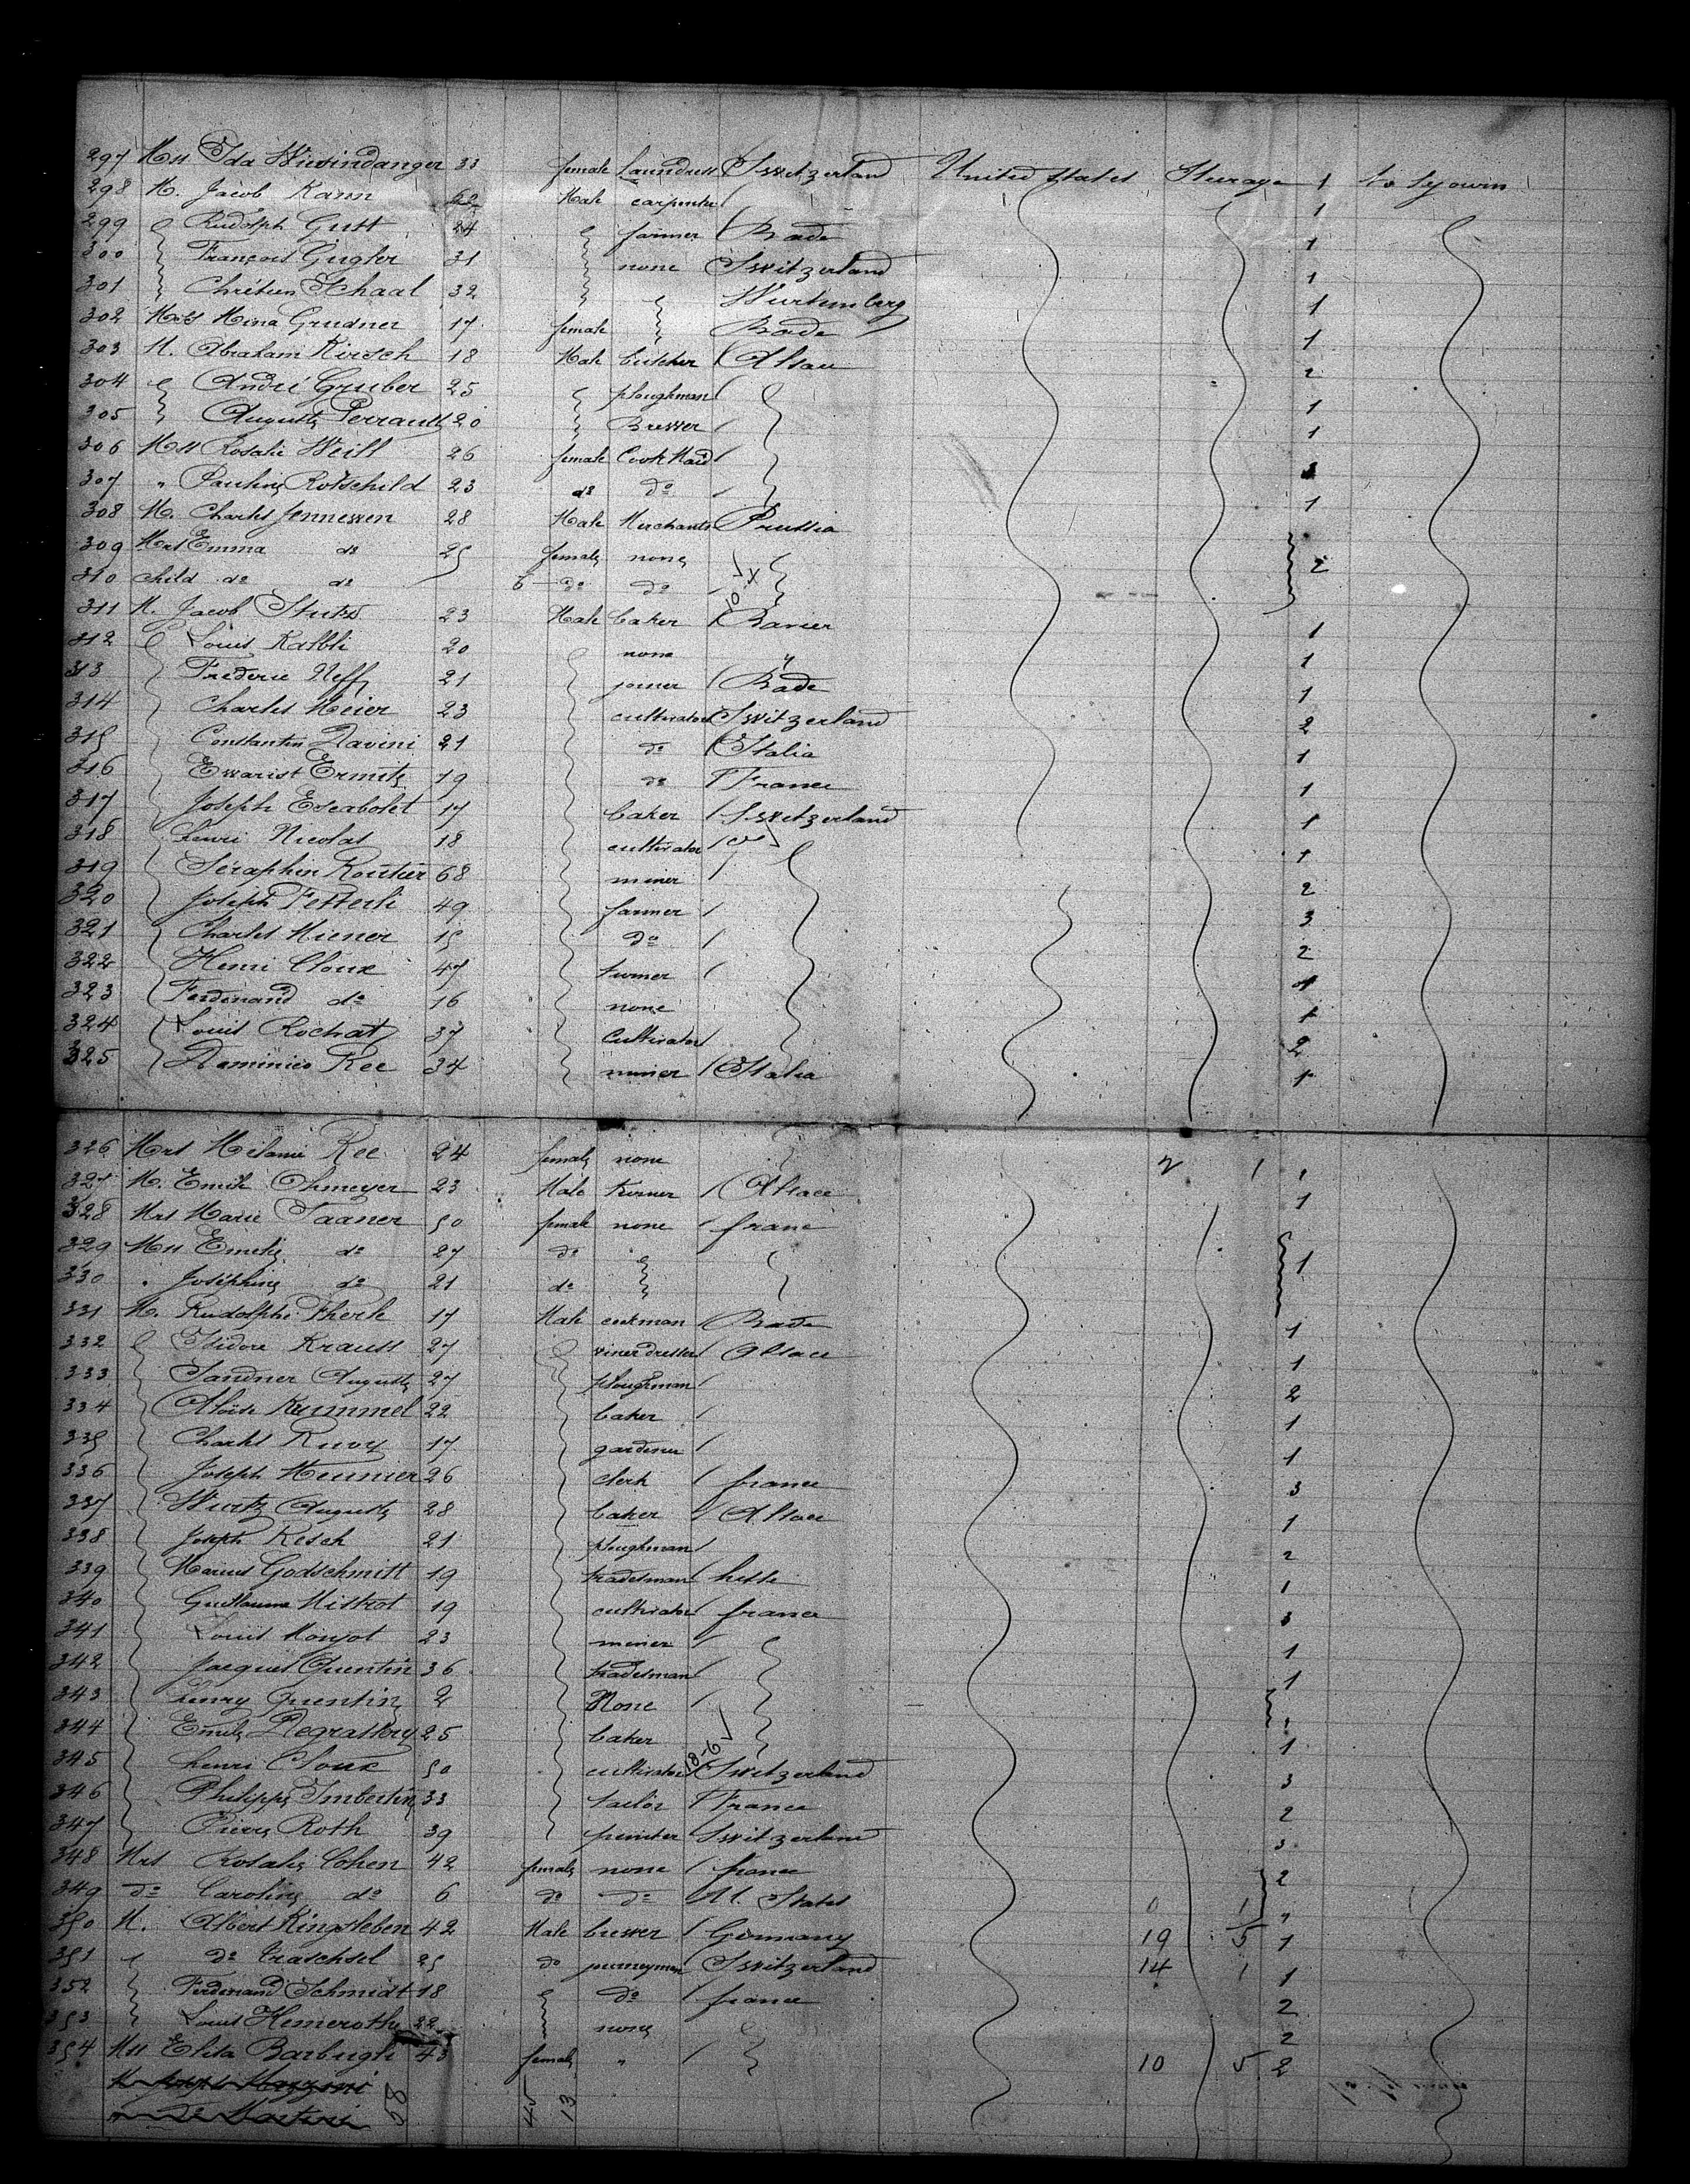 297 Mss Ida Wiesindanger 33 female Laundress Switzerland United States Sterage 1 to Sejourn
298 M. Jacob Kann 62 Male carpenter 1
299 Rudolph Gutt 24 farmer Bade 1
300 François Gugler 31 none Switzerland 1
301 Chrétien Schaal 32 Wurtemberg 1
302 Mss Mina Grudner 17 female Bade 1
303 M. Abraham Kirsch 18 Male butcher Alsace 2
304 André Gruber 25 ploughman 1
305 Auguste Perrault 20 Brewer 1
306 Mss Rosalie Weill 26 female Cook Maid
307 " Pauline Rotschild 23 do do 1
308 M. Charles Jennewen 28 Male Merchants Prussia
309 Mrs Emma do 25 female none 2
310 child do do 6 do do
10-X
311 M. Jacob Stutz 23 Male baker Bavier 1
312 Louis Kalbli 20 none 1
313 Frederic Neff 21 joiner Bade 1
314 Charles Meier 23 cultivator Switzerland 2
315 Constantin Ravini 21 do Italia 1
316 Evarist Ermite 19 do France 1
317 Joseph Escabolet 17 baker Switzerland 1
318 henri Nicolas 18 cultivator 1
319 Séraphin Routier 68 miner 2
320 Joseph Fetterli 49 farmer 3
321 Charles Miener 15 do 2
322 Henri Cloux 47 turner 1
323 Ferdinand do 16 none 1
324 Louis Rochat 37 Cultivator 2
325 Dominico Ree 34 miner Italia 1
326 Mrs Mélanie Ree 24 female none 1
327 M. Emile Ohmeyer 23 Male turner Alsace 1
328 Mrs Marie Saaner 50 female none france
329 Mss Emelie do 27 do 1
330 " Joséphine do 21 do
331 M. Rudolphe Eherle 17 Male cookman Bade 1
332 Isidore Krauss 27 vinerdresser Alsace 1
333 Sandner Auguste 27 ploughman 2
334 Aloïse Kummel 22 baker 1
335 Charles Ruvy 17 gardener 1
336 Joseph Meunier 26 clerk france 3
337 Wurtz Auguste 28 baker Alsace 1
338 Joseph Resch 21 ploughman 2
339 Marius Godschmitt 19 tradesman hesse 1
340 Guillaume Mistrot 19 cultivator france 3
341 Louis Monjot 23 miner 1
342 Jacques Quentin 36 tradesman 1
343 henry Quentin 2 None
344 Emile Degrattery 25 baker 1
18-6
345 henri Cloux 50 cultivator Switzerland 3
346 Philippe Imbertin 33 tailor France 2
347 Pierre Roth 39 painter Switzerland 3
348 Mrs Rosalie Cohen 42 female none france 2
349 do Caroline do 6 do do U. States 0 1 "
350 M. Albert Ringsleben 42 Male brewer Germany 19 5 1
351 do Traschsel 25 do journeyman Switzerland 14 1 1
352 Ferdinand Schmidt 18 do france 2
353 Louis Hemerothe 22 none 2
354 Mss Elisa Barbughi 43 female " 10 5 2
M. Joseph Mazzoni
" do Martini